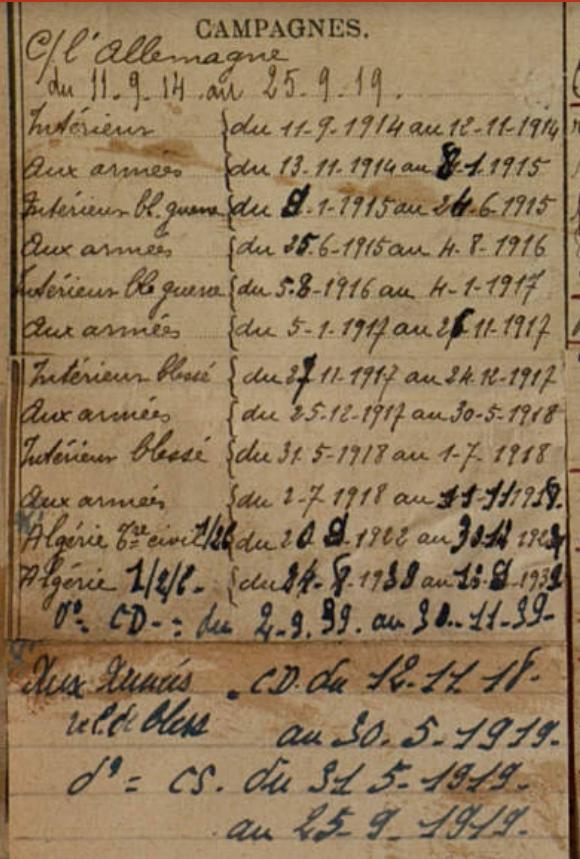 CAMPAGNES.
C/ l'Allemagne
du 11.9.14 au 25.9.19.
Intérieur { du 11-9-1914 au 12-11-1914
Aux armées { du 13.11.1914 au 8-1.1915
Intérieur bl. guerre { du 9.1-1915 au 24.6.1915
Aux armées { du 25.6-1915 au 4.8-1916
Intérieur ble guerre { du 5.8-1916 au 4-1-1917
Aux armées { du 5-1-1917 au 26.11-1917
Intérieur blessé { du 27.11-1917 au 24.12-1917
Aux armées { du 25.12-1917 au 30-5-1918
Intérieur blessé { du 31.5-1918 au 1-7.1918
Aux armées { du 2-7 1918 au 11-11 1918.
Algérie civil 1/2 { du 20 9 1922 au
Algérie 1/2/C- { du 24-8-1939 au 1939
d°= CD-: du 2-9.39. au 30-11-39-
Aux Armées . C.D. du 12-11 18-
au 30.5-1919-
d°= CS. du 31 5-1919-
au 25-9-1919-